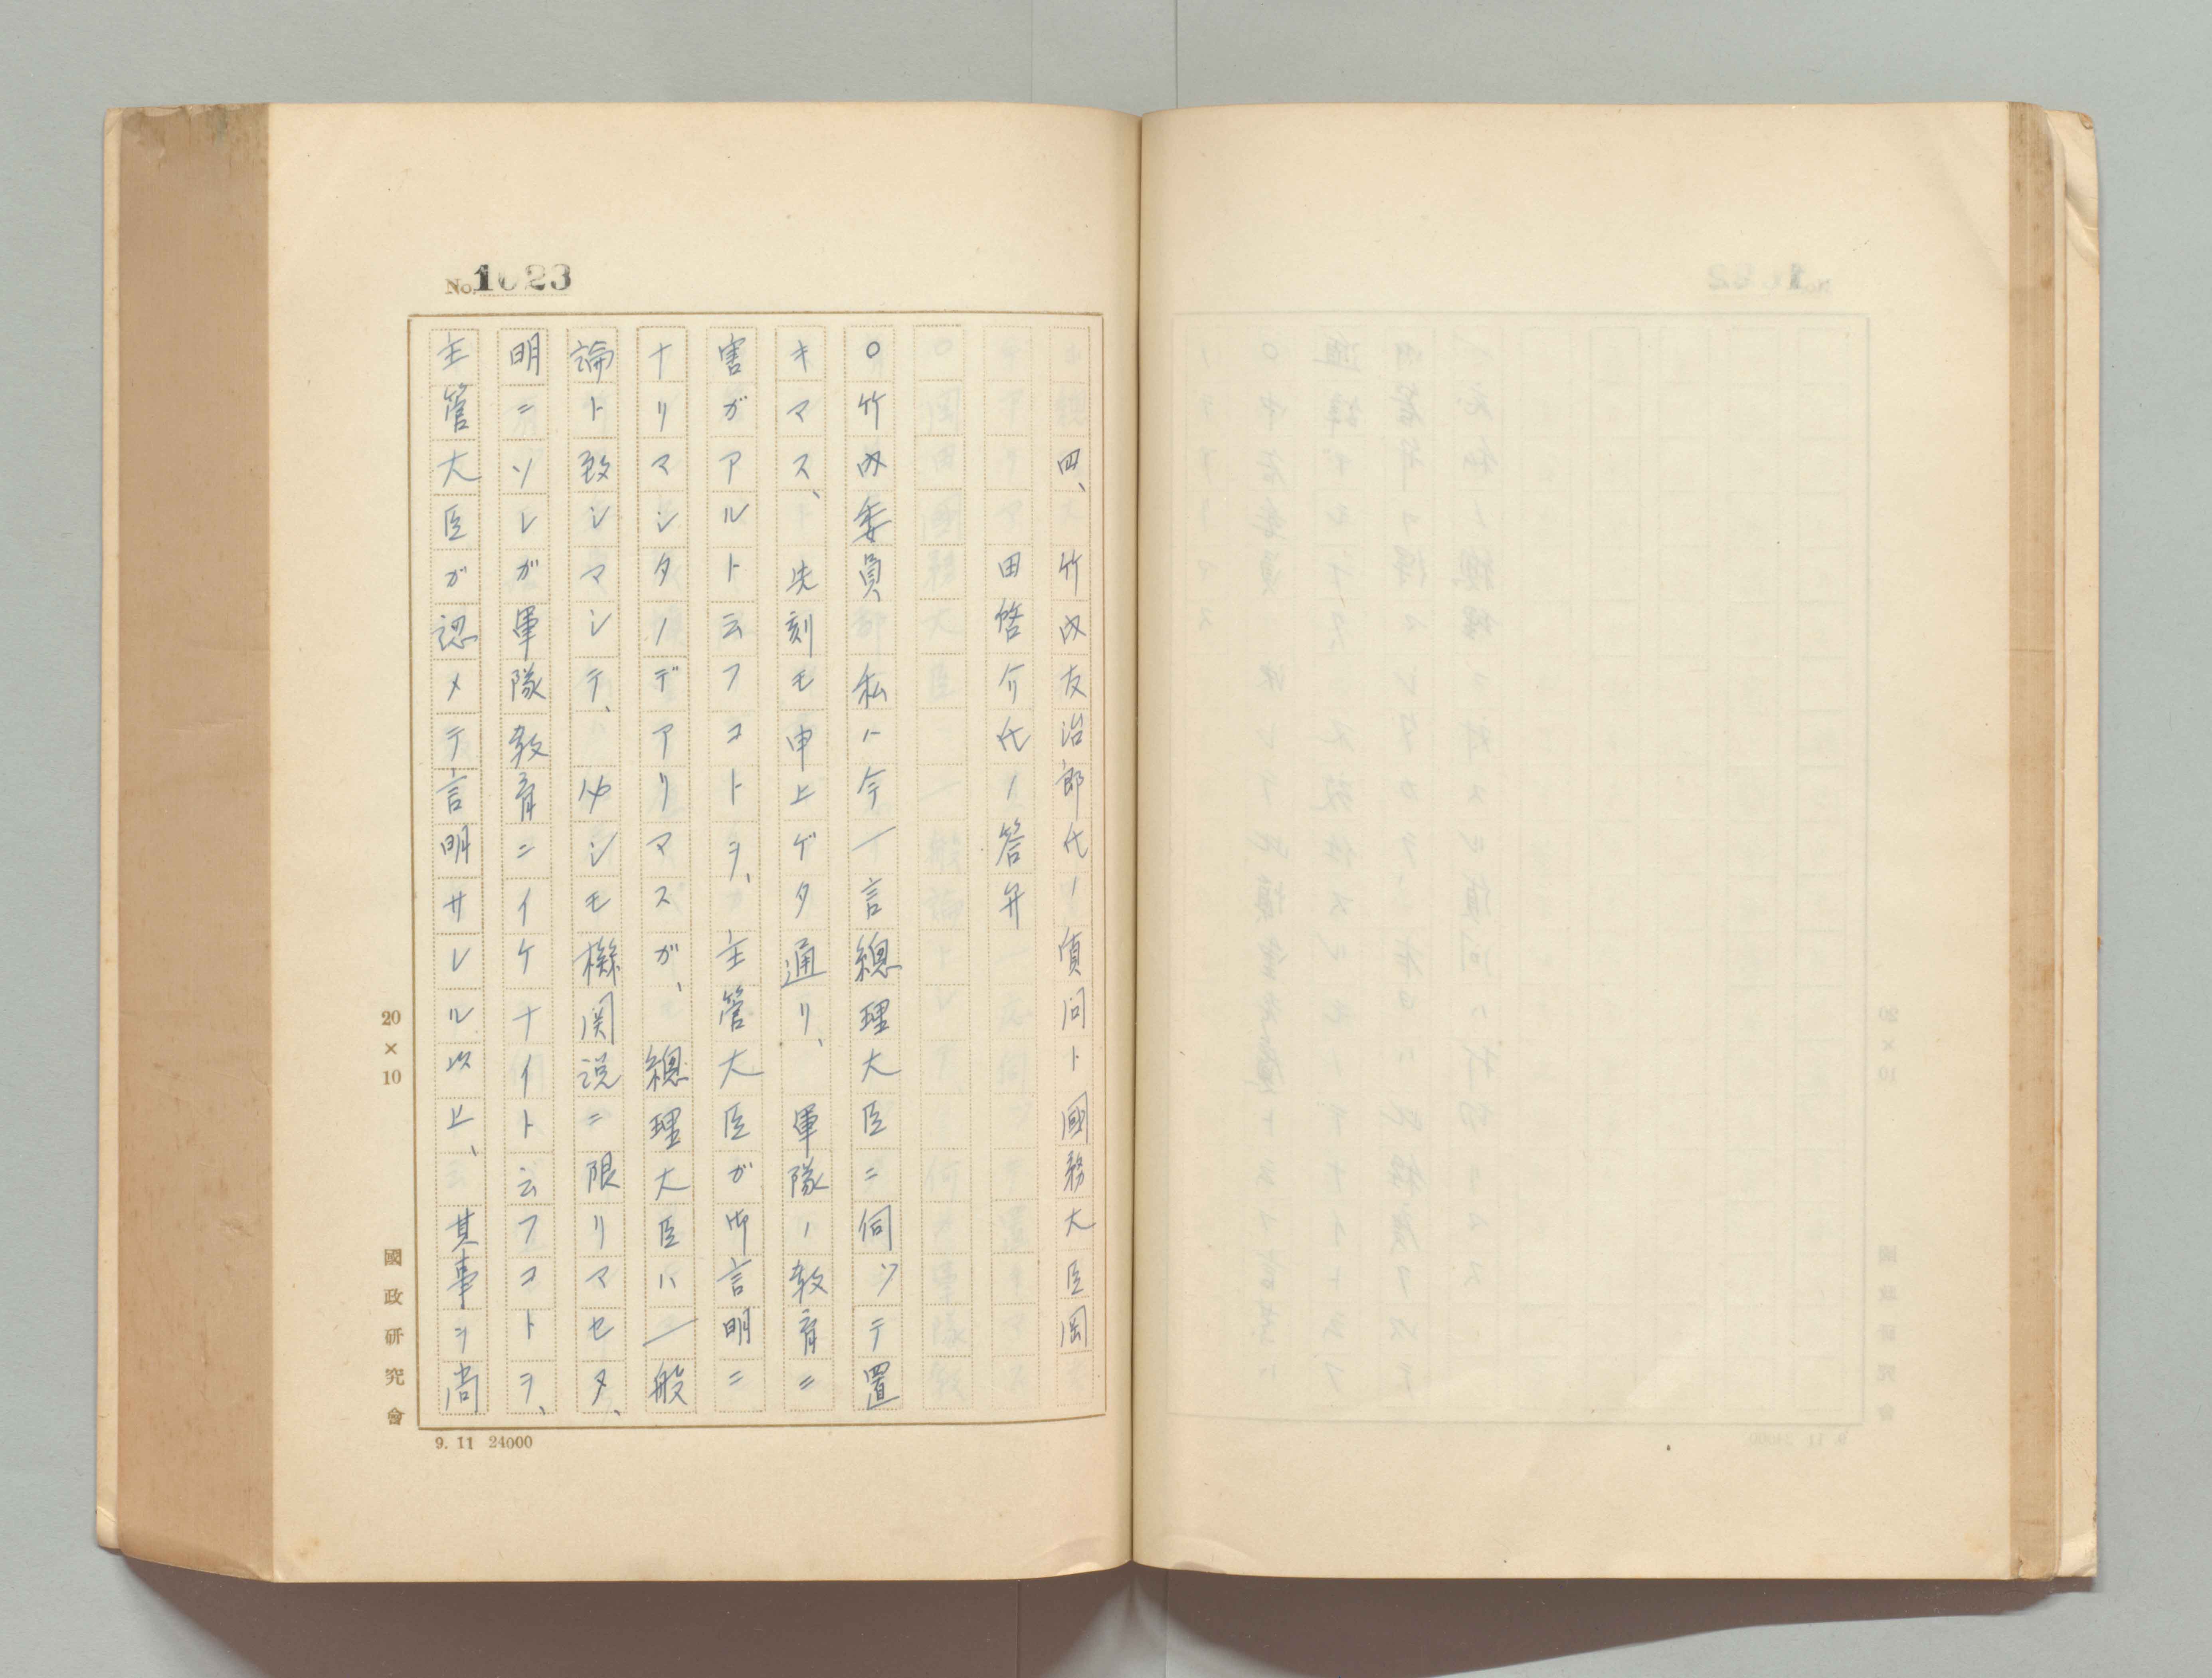 No. 1023
四、竹内友治郎氏ノ質問ト國務大臣岡
田啓介氏ノ答弁
○竹内委員 私ハ今一言總理大臣ニ伺ツテ置
キマス、先刻モ申上ゲタ通リ、軍隊ノ教育ニ
害ガアルト云フコトヲ、主管大臣ガ御言明ニ
ナリマシタノデアリマスガ、總理大臣ハ一般
論ト致シマシテ、必シモ機関説ニ限リマセヌ、
明ニソレガ軍隊教育ニイケナイト云フコトヲ、
主管大臣ガ認メテ言明サレル以上、其事ヲ尚
20×10
國政研究會
9. 11 24000